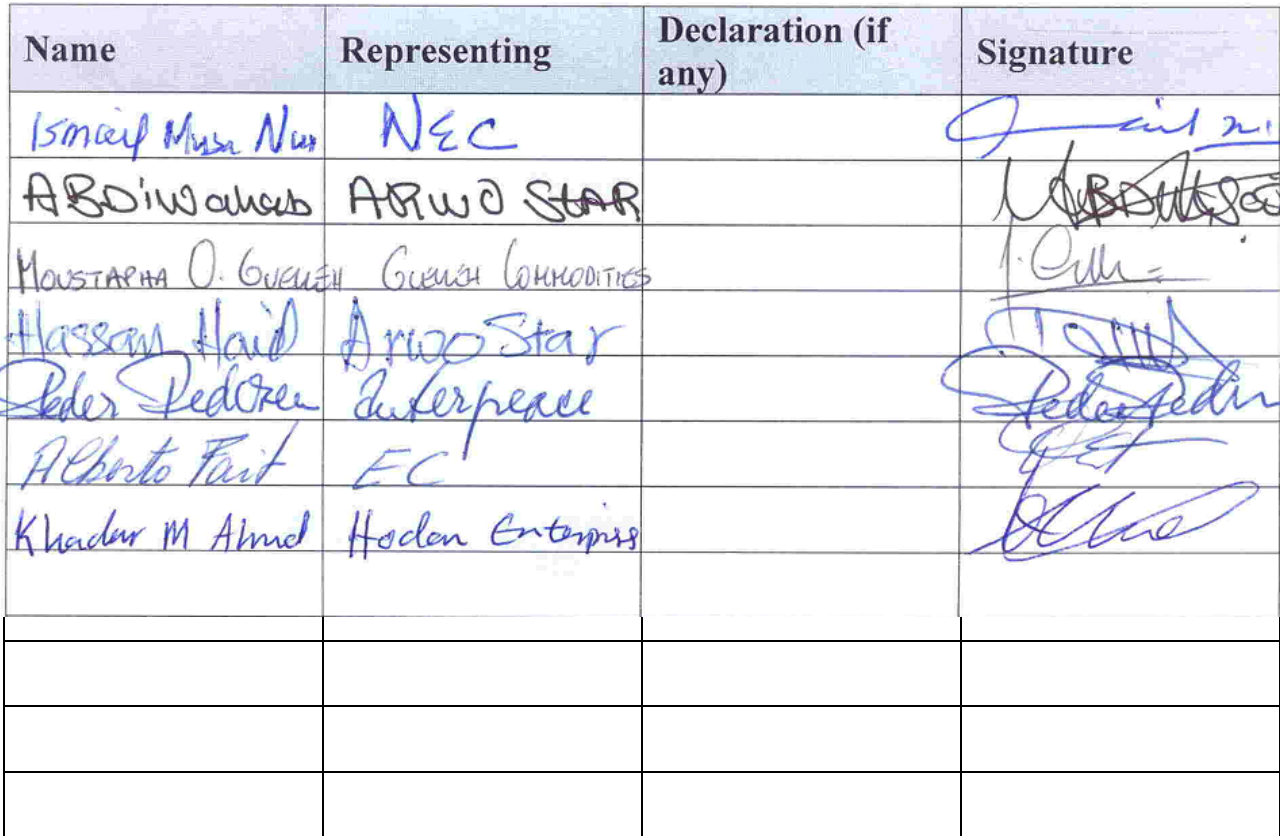 Name Representing Declaration (if any) Signature
Ismail Musa Nur NEC
ABDiWahab ARWO StAR
MOUSTAPHA O. GUELLEH GUELLEH COMMODITIES
Hassan Haid Arwo Star
Peder Pedersen Interpeace
Alberto Fait EC
Khadar M Ahmd Hodan Enterpriss